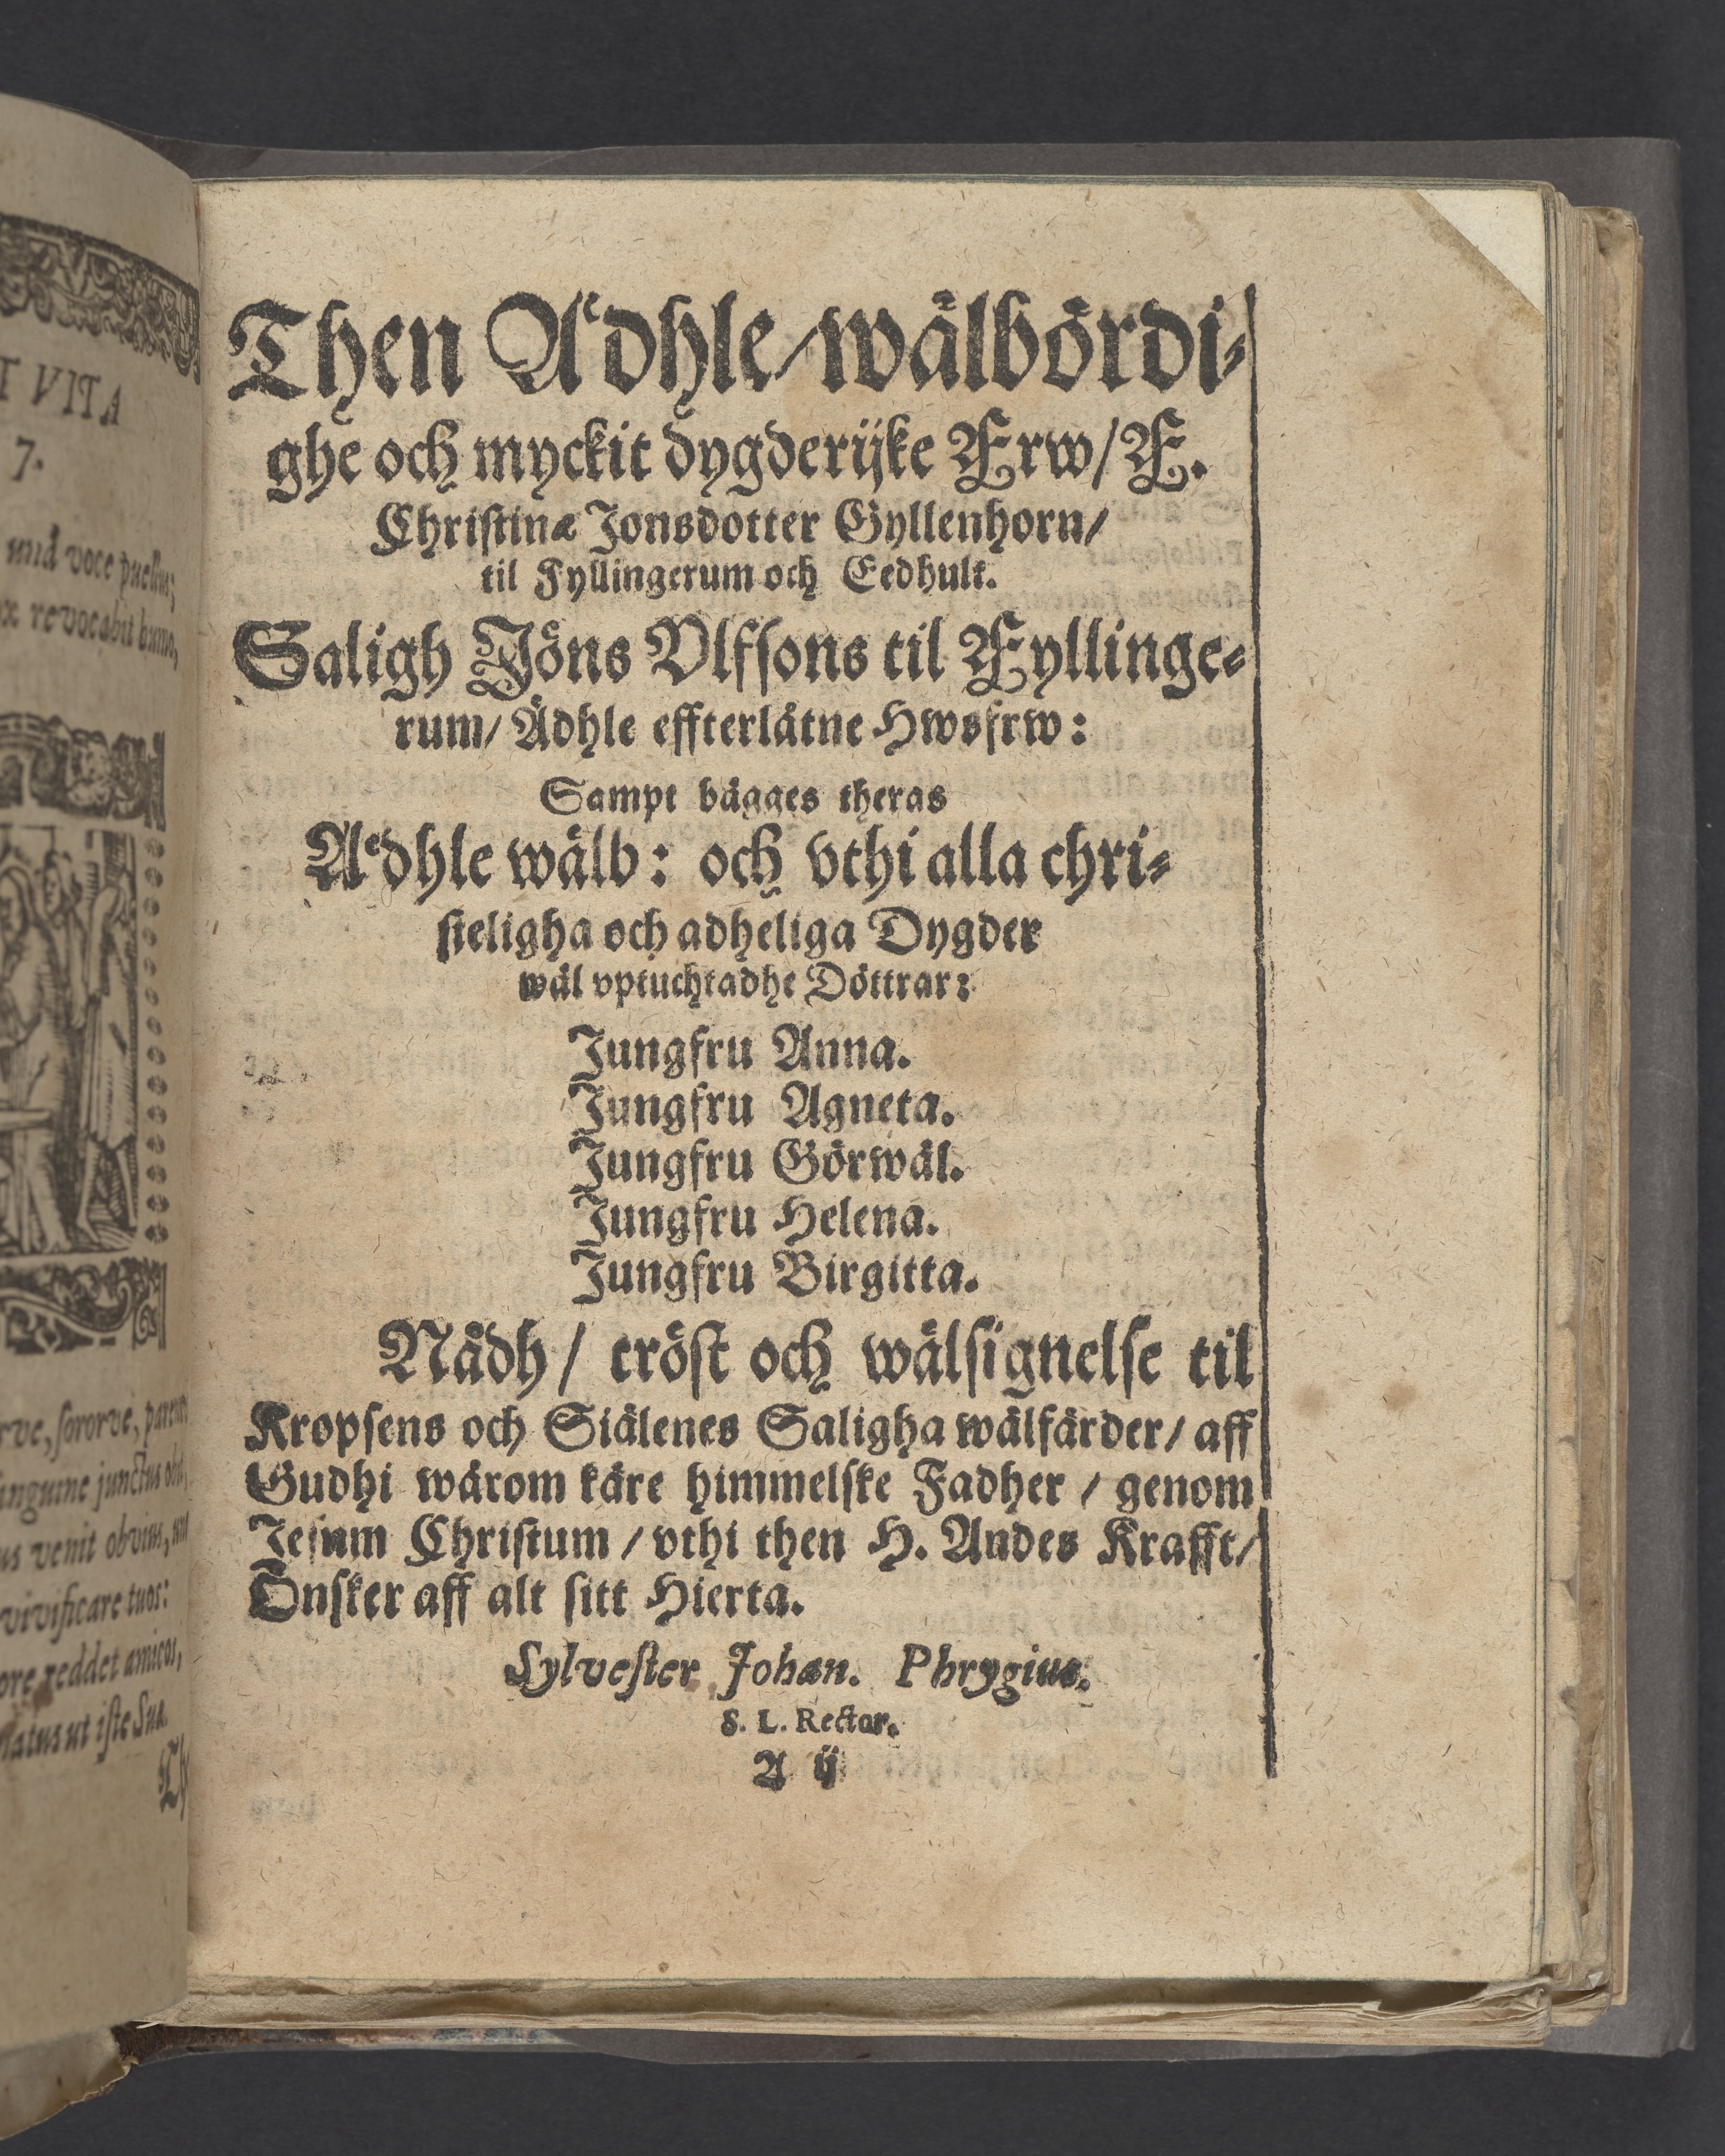 T VITA
7.
nuâ voce puellus;
ox revocabit humo,
rve, sororve, parente
anguine junctus obit,
us venit obvius,
vivificare tuos:
ore reddet amicos,
natus ut iste Sua.
Then Aͤdhle/wälbördi-
ghe och myckit dygderijke Frw/F.
Christinæ Jonsdotter Gyllenhorn/
til Fyllingerum och Eedhult.
Saligh Jöns Vlfsons til Fyllinge-
rum/Ädhle effterlåtne Hwsfrw:
Sampt bägges theras
Aͤdhle wälb: och vthi alla chri-
steligha och adheliga Dygder
wäl vptuchtadhe Döttrar:
Jungfru Anna.
Jungfru Agneta.
Jungfru Görwäl.
Jungfru Helena.
Jungfru Birgitta.
Nådh/ tröst och wälsignelse til
Kropsens och Siälenes Saligha wälfärder/ aff
Gudhi wårom käre himmelske Fadher / genom
Jesum Christum /vthi then H. Andes Krafft/
Önsker aff alt sitt Hierta.
Sylvester Johan. Phrygius.
S. L. Rector.
A ij